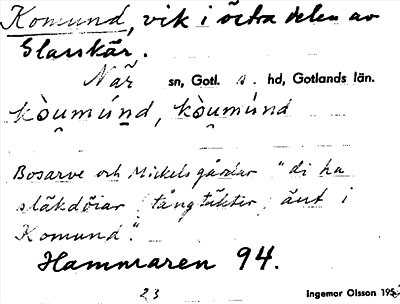 Komund, vik i östra delen av
Glasskär.
När sn, Gotl. s. hd, Gotlands län.
kòu̯múnd, kòu̯múnd
Bosarve och Mickelsgårdar "di ha
släkdöiar (tångtäkter) äut i
Komund."
Hammaren 94.
23 Ingemar Olsson 195